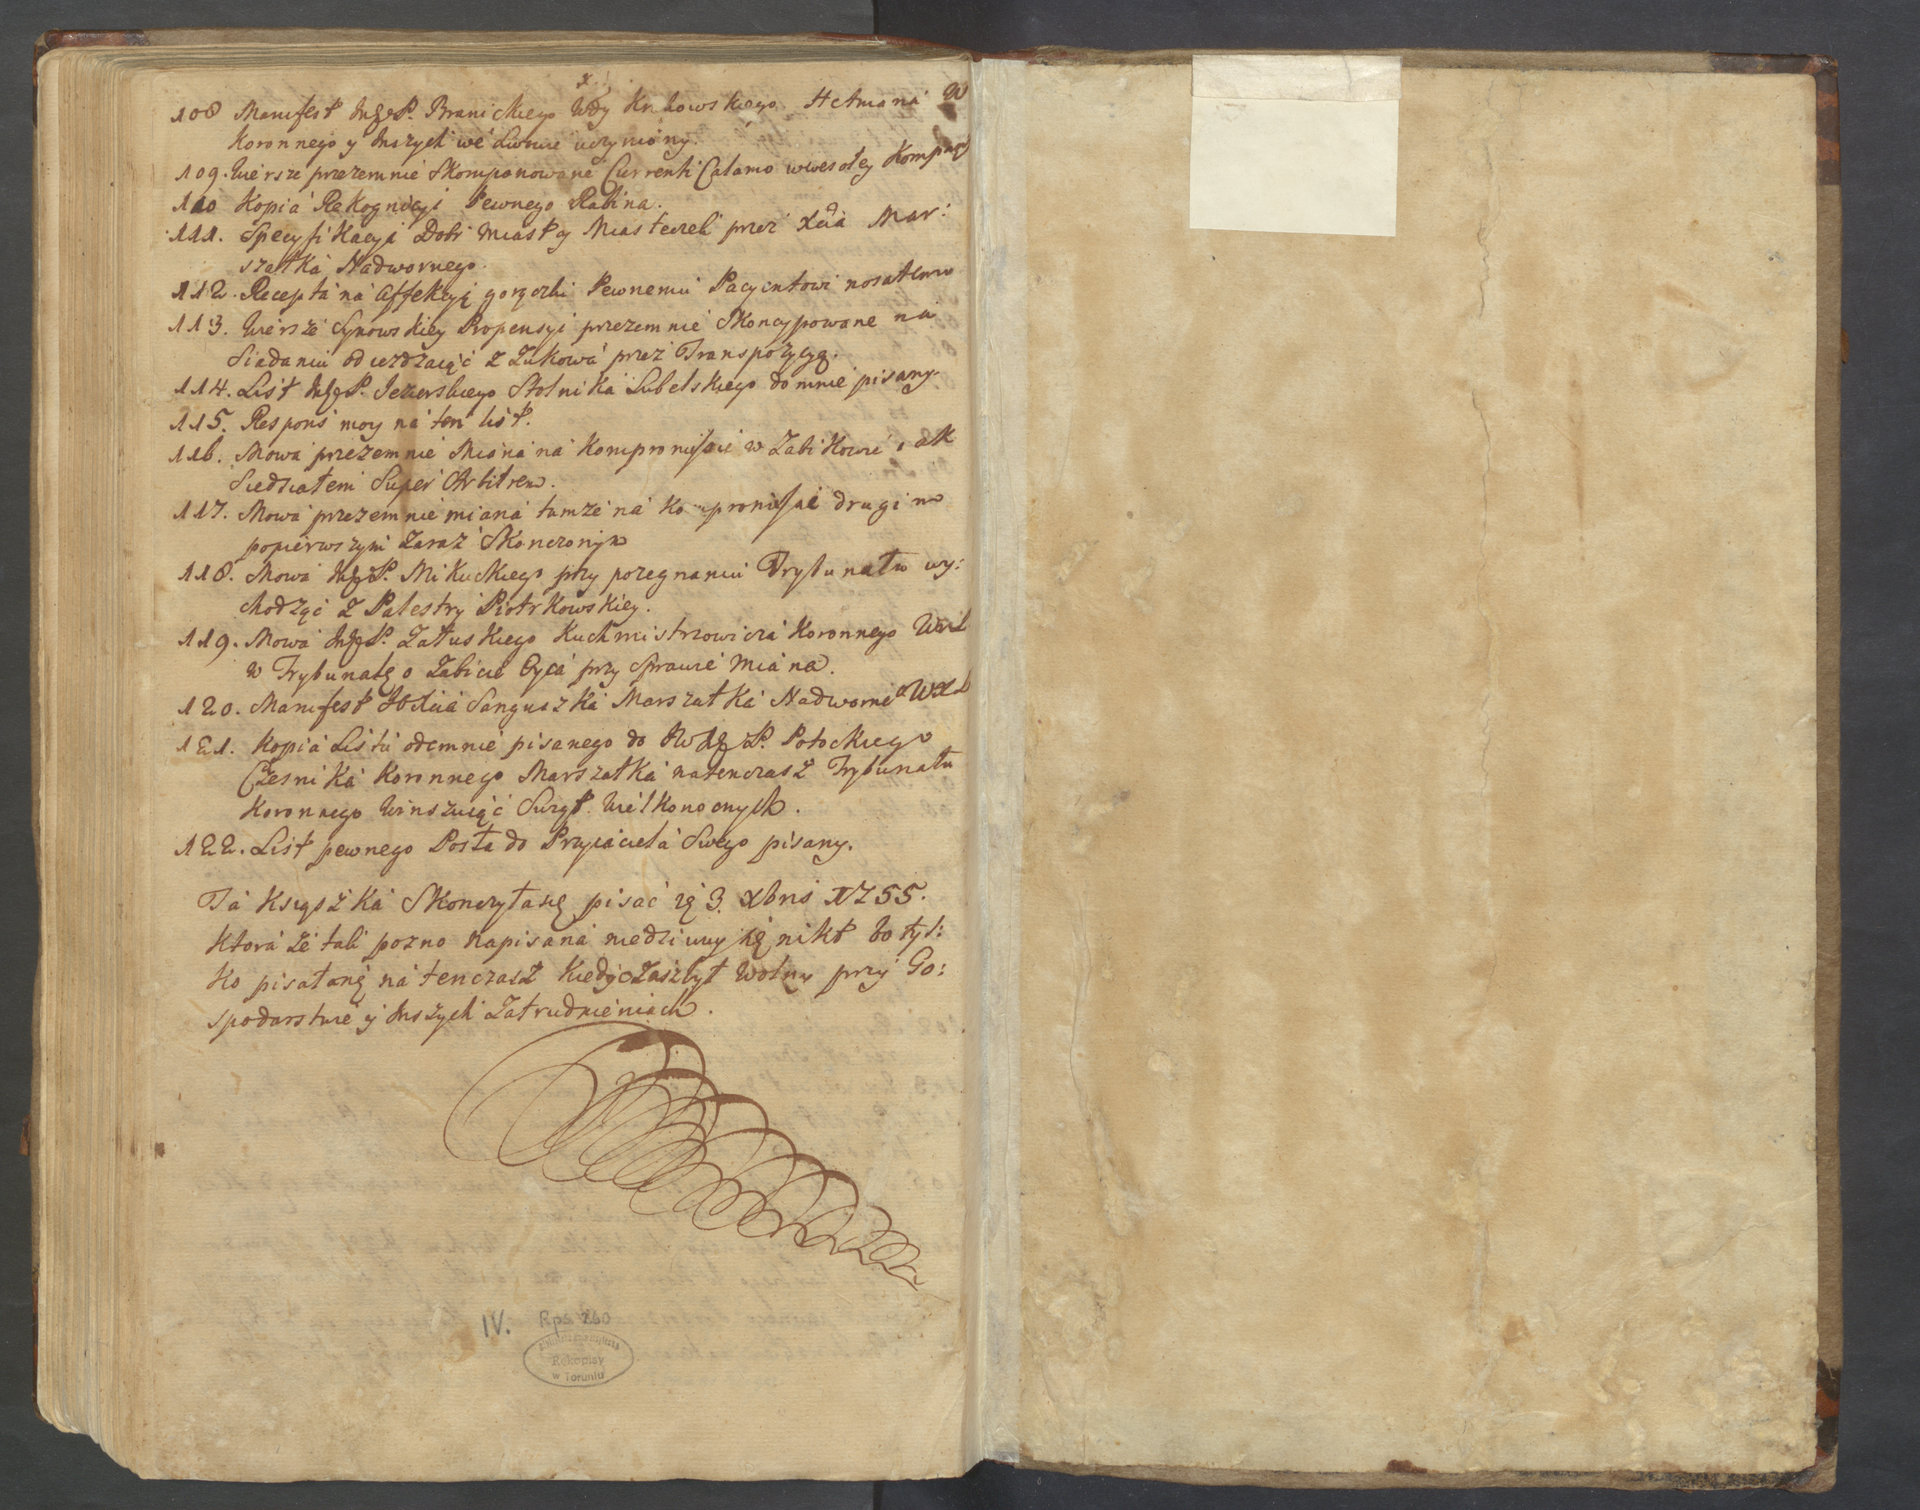 108 Manifest JmP. Branickiego Wdy Krakowskiego Hetmaná W
Koronnego y Inszych we Lwowie uczyniony.
109. Wiersze przezemnie Skomponowane Currenti Calamo wwesołey Kompanij
110 Kopiá Rekognicyi Pewnego Rabina.
111. Specyfikacyá Dobr Miast y Miasteczek przez Xcia Mar:
szałká Nadwornego.
112. Receptá ná Affekcyą gorączki Pewnemu Pacyentowi nosatemu
113. Wiersze Synowskiey Propensyi przezemnie Skoncypowane ná
Siadaniu odiezdzaiąc z Zukowá przez Transpozycyą.
114. List JmP. Jezierskiego Stolniká Lubelskiego do mnie pisany.
115. Respons moy ná ten list.
116. Mowá przezemnie Mianá ná Kompromissie w Zabikowie, iak
Siedziałem Super Arbitrem.
117. Mowá przezemnie mianá tamze ná Kompromissie drugim
popierwszym Zaraz Skonczonym
118. Mowá JmP. Mikuckiego przy pozegnaniu Trybunału wy:
chodząc z Palestry Piotrkowskiey.
119. Mowá JmP. Załuskiego Kuchmistrzowiczá Koronnego
w Trybunale o Zabicie Oycá przy Sprawie Miána.
120. Manifest Xcia Sanguszká Marszałká Nadworne WXL
121. Kopiá Listu odemnie pisanego do JWJmP. Potockiego
Cześniká Koronnego Marszałká natenczas Trybunału
Koronnego Winszuiąc Swiąt Wielkonocnych.
122. List pewnego Posła do Przyiacielá Swego pisany.
Tá Ksiąszká Skonczyłasię pisać 3. Xbris 1755.
Ktorá ze tak pozno napisaná niedziwuy się nikt bo tyl:
ko pisałasię ná tenczas Kiedy czas był Wolny przy Go:
spodarstwie y Inszych Zatrudnieniach.
IV. Rps 260
Rękopisy
w Toruniu